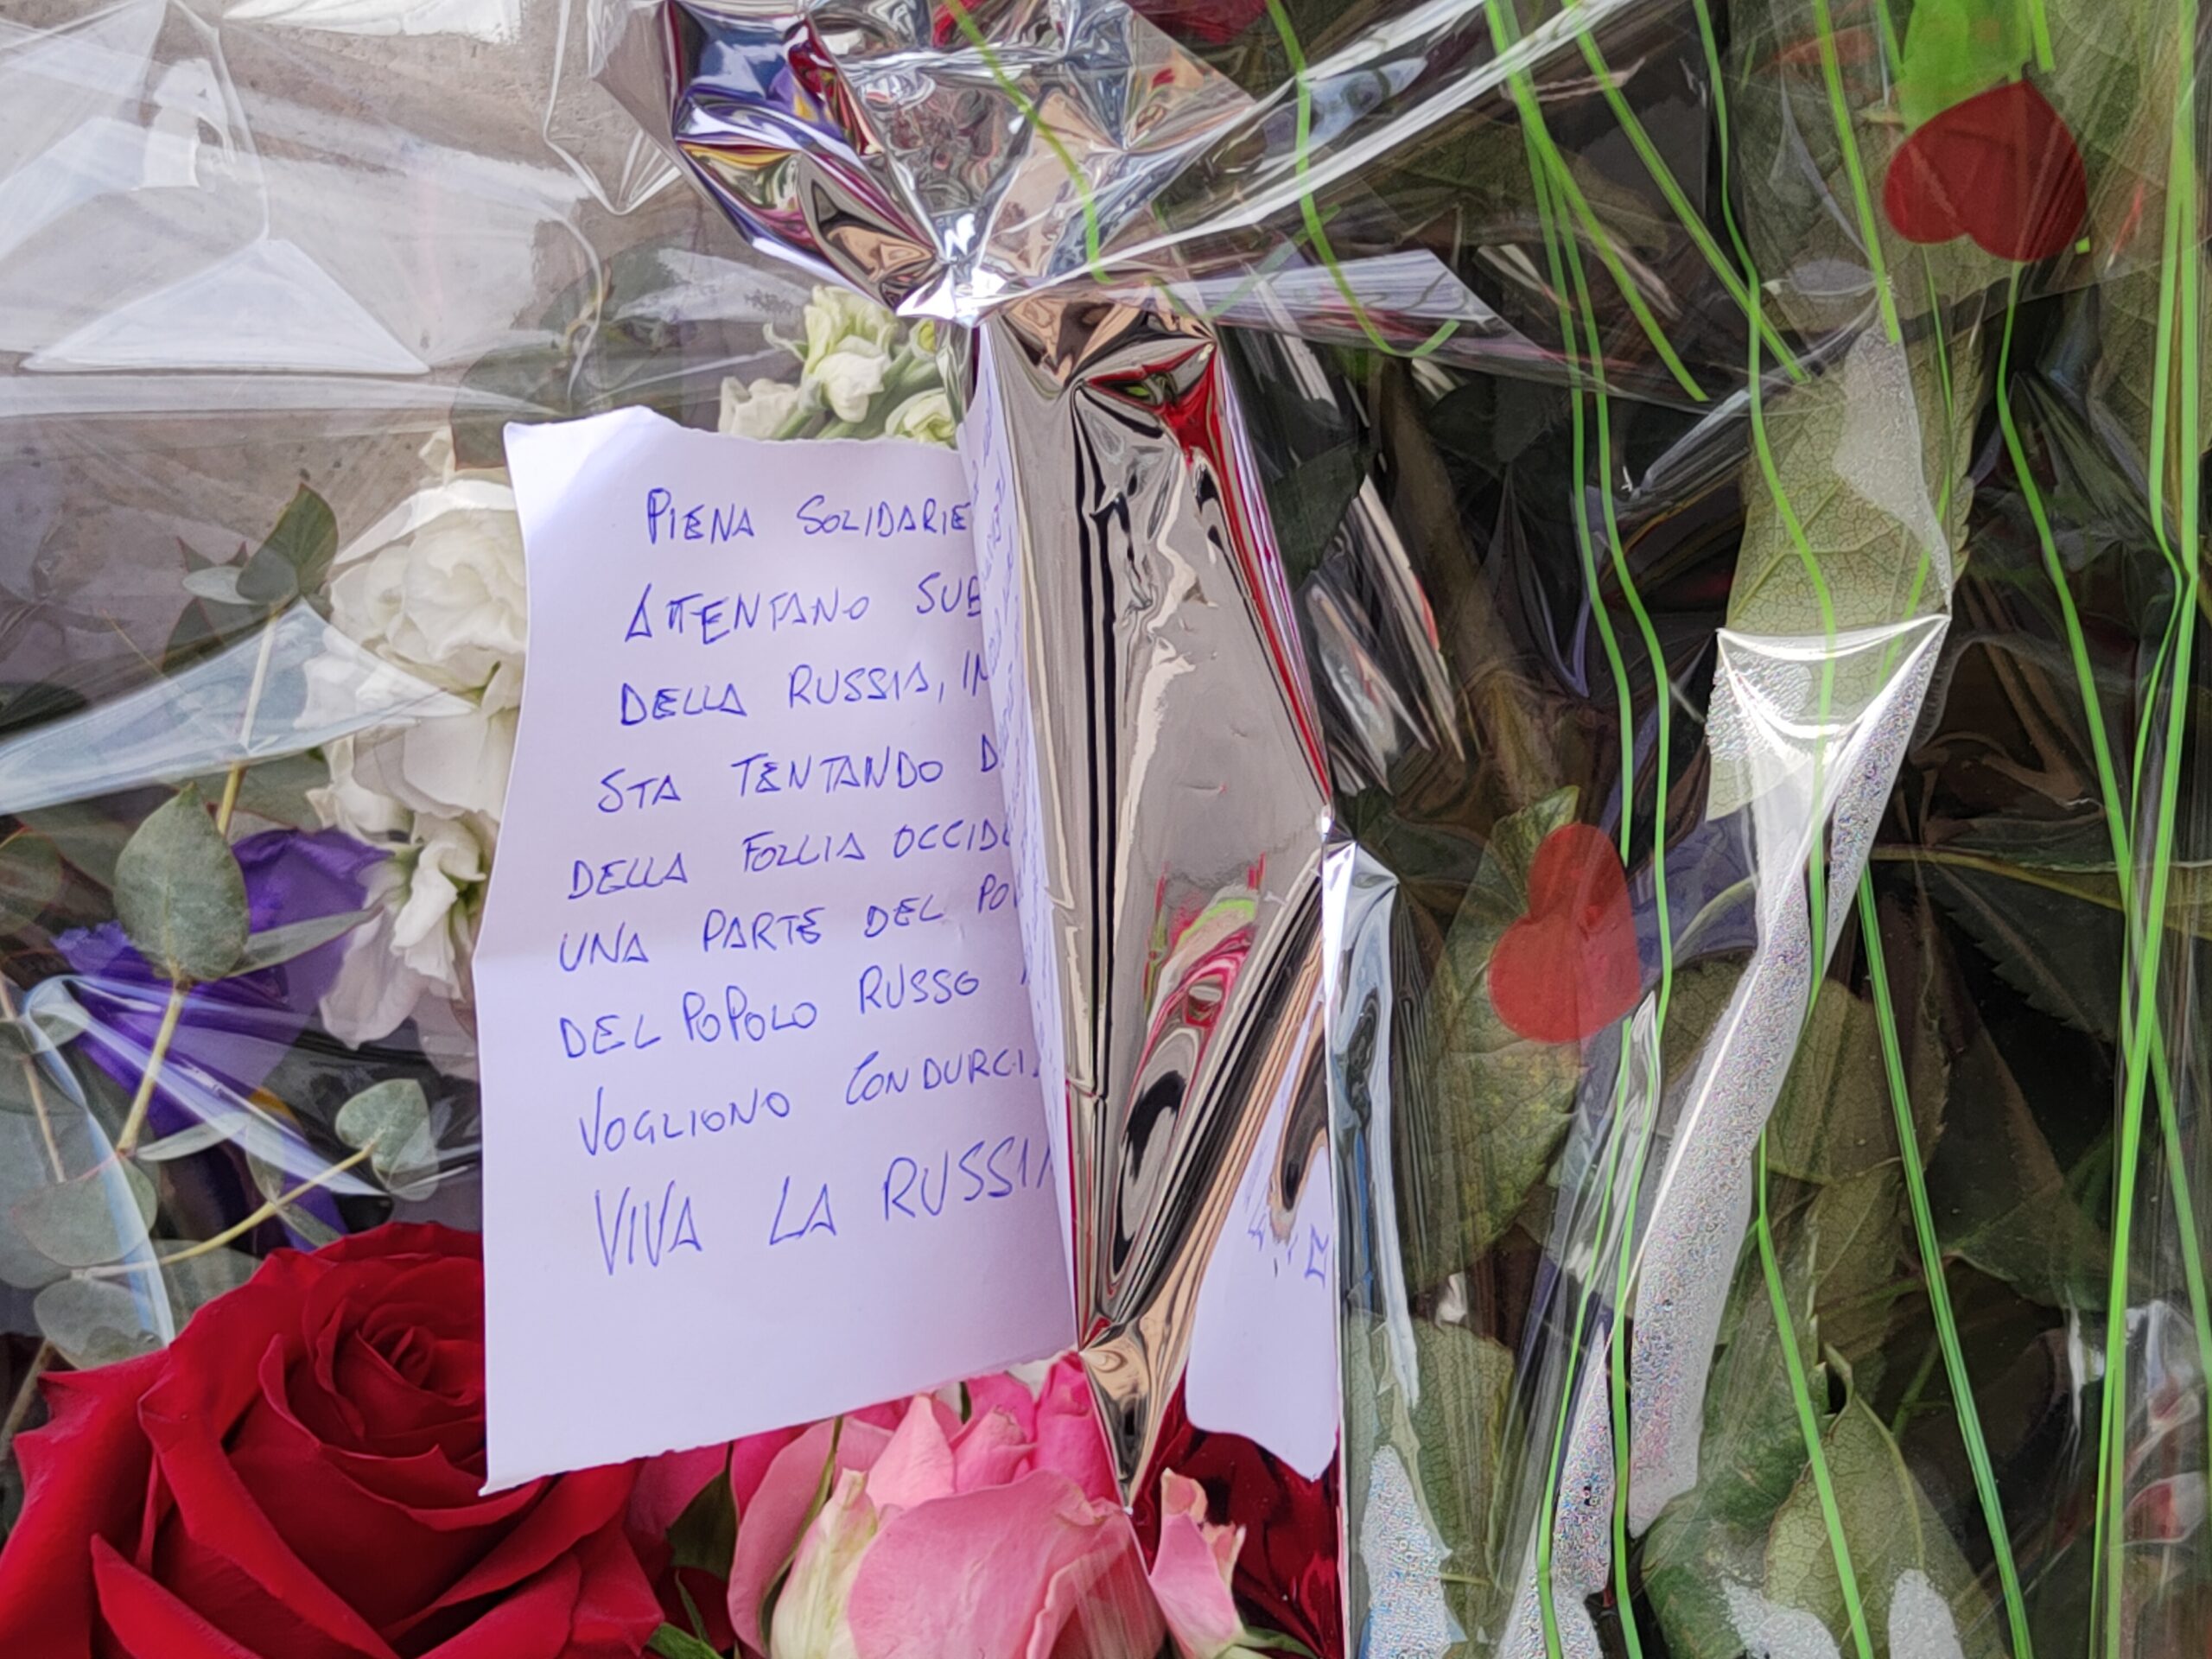 PIENA SOLIDARIE
ATTENTANO SUB
DELLA RUSSIA, IN
STA TENTANDO D
DELLA FOLLIA OCCIDE
UNA PARTE DEL PO
DEL POPOLO RUSSO
VOGLIONO CONDURCI
VIVA LA RUSSIA